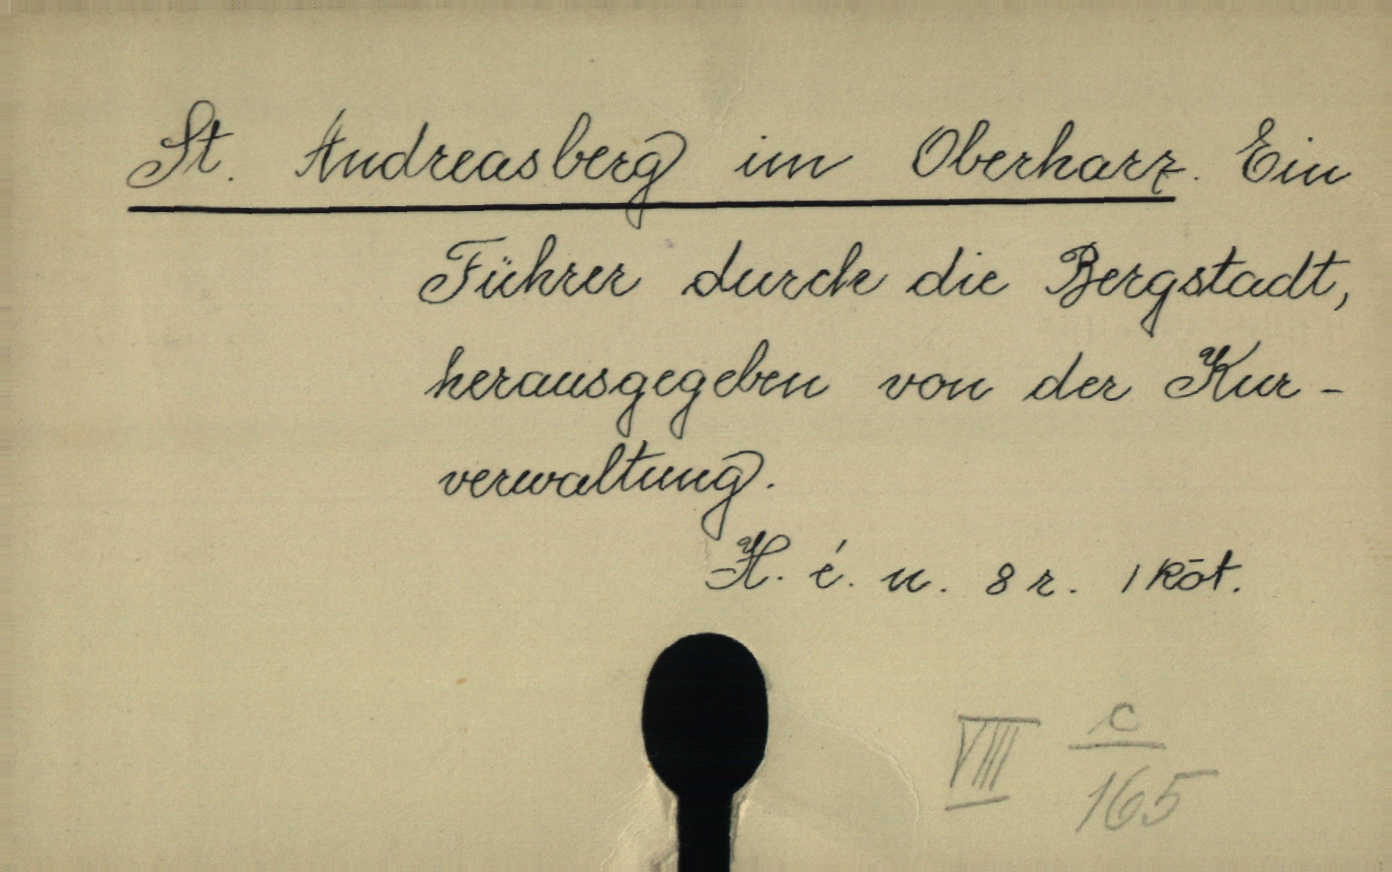 St. Andreasberg im Oberharz. Ein
Führer durch die Bergstadt,
herausgegeben von der Kur-
verwaltung.
H. é. n. 8 r. 1 köt.
VIII c/165